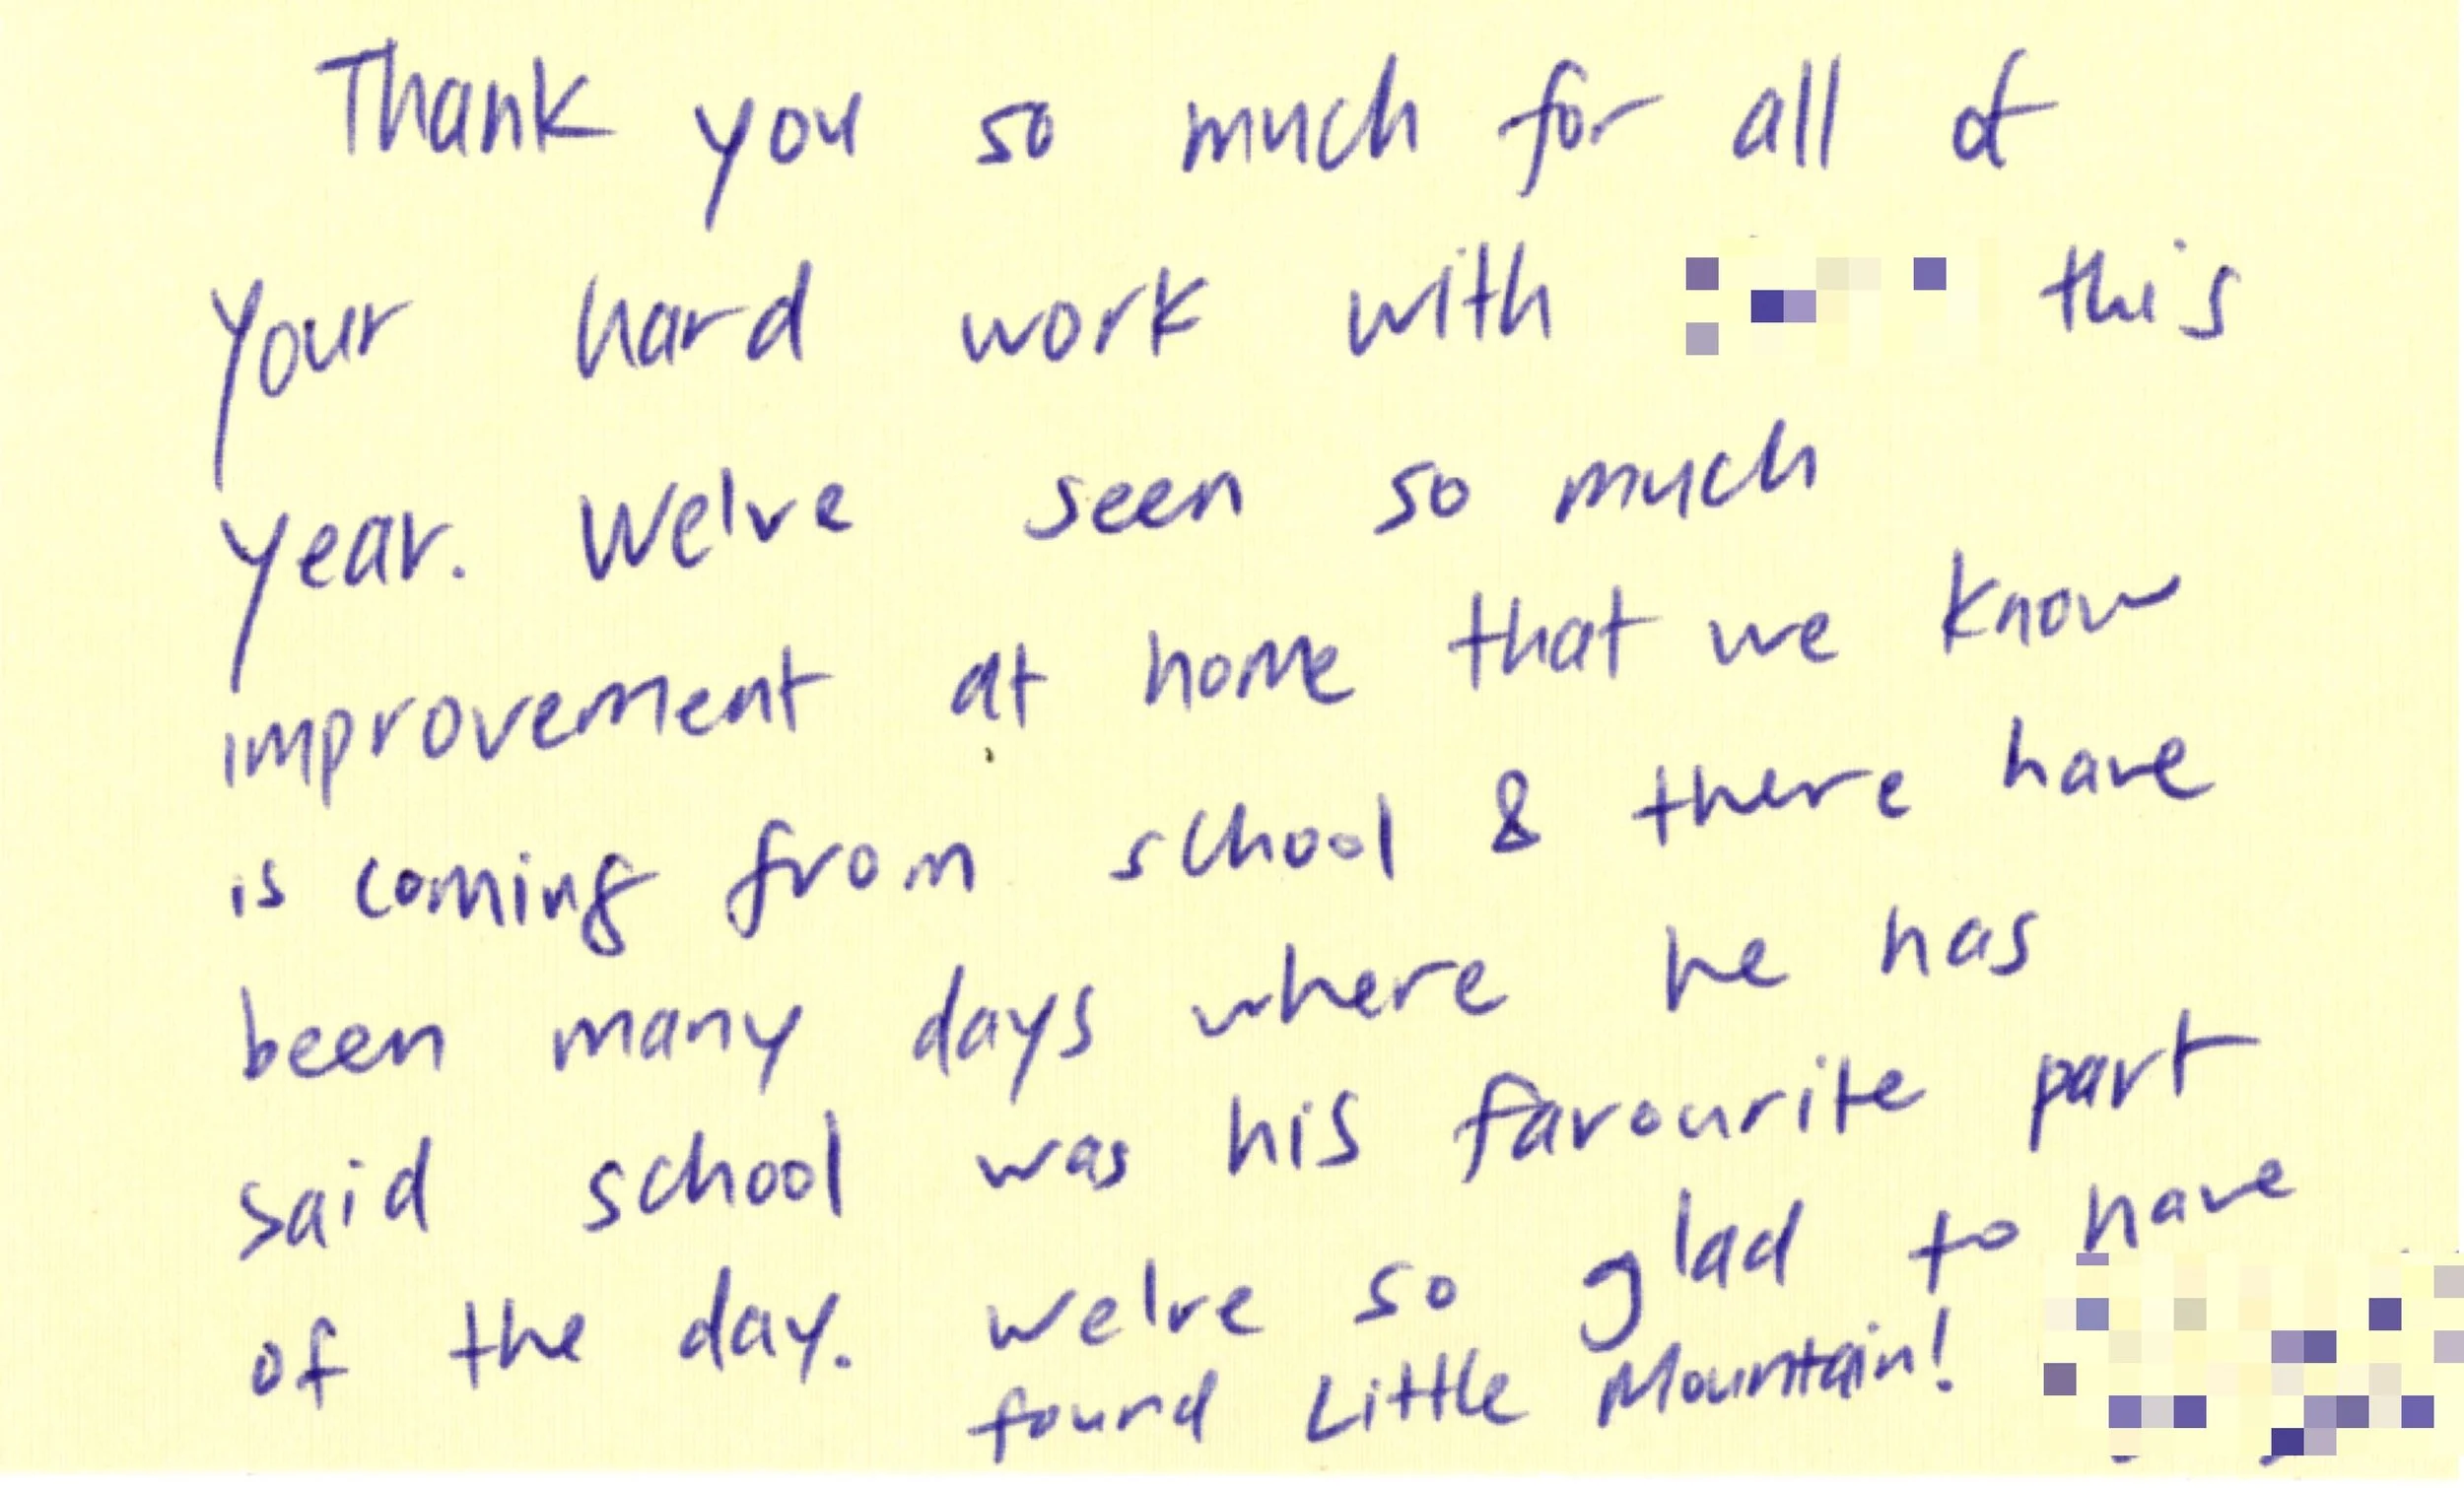 Thank you so much for all of
your hard work with this
year. We've seen so much
improvement at home that we know
is coming from school & there have
been many days where he has
said school was his favourite part
of the day. We've so glad to have
found Little Mountain!